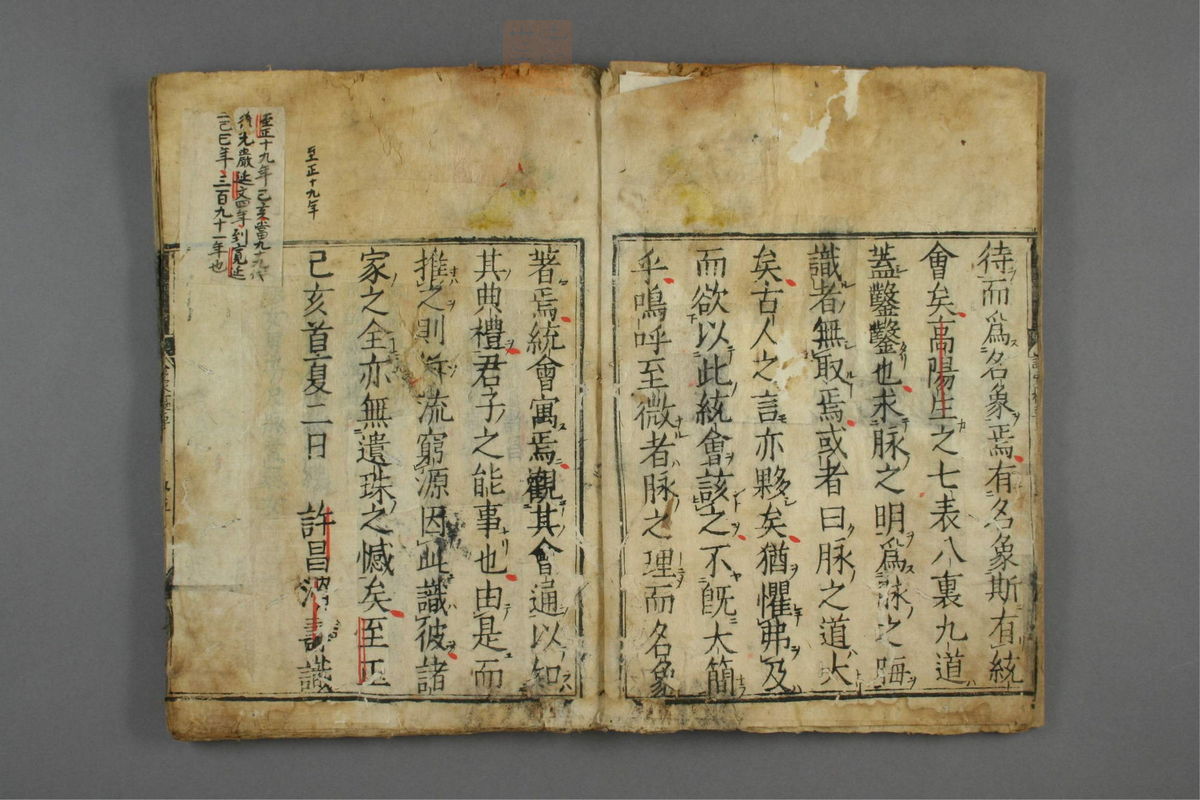 待而爲名象焉有名象斯有統
會矣高陽生之七表八裏九道
蓋鑿鑿也求脉之明爲脉之晦
識者無取焉或者曰脉之道大
矣古人之言亦夥矣猶懼弗及
而欲以此統會該之不旣太簡
乎嗚呼至微者脉之理而名象
著焉統會寓焉觀其會通以知
其典禮君子之能事也由是而
推之則泝流窮源因此識彼諸
家之全亦無遺珠之憾矣至正
己亥首夏二日 許昌滑壽識
至正十九年
至正十九年己亥當九十九代
後光嚴延文四年到寛延
二己巳年三百九十一年也